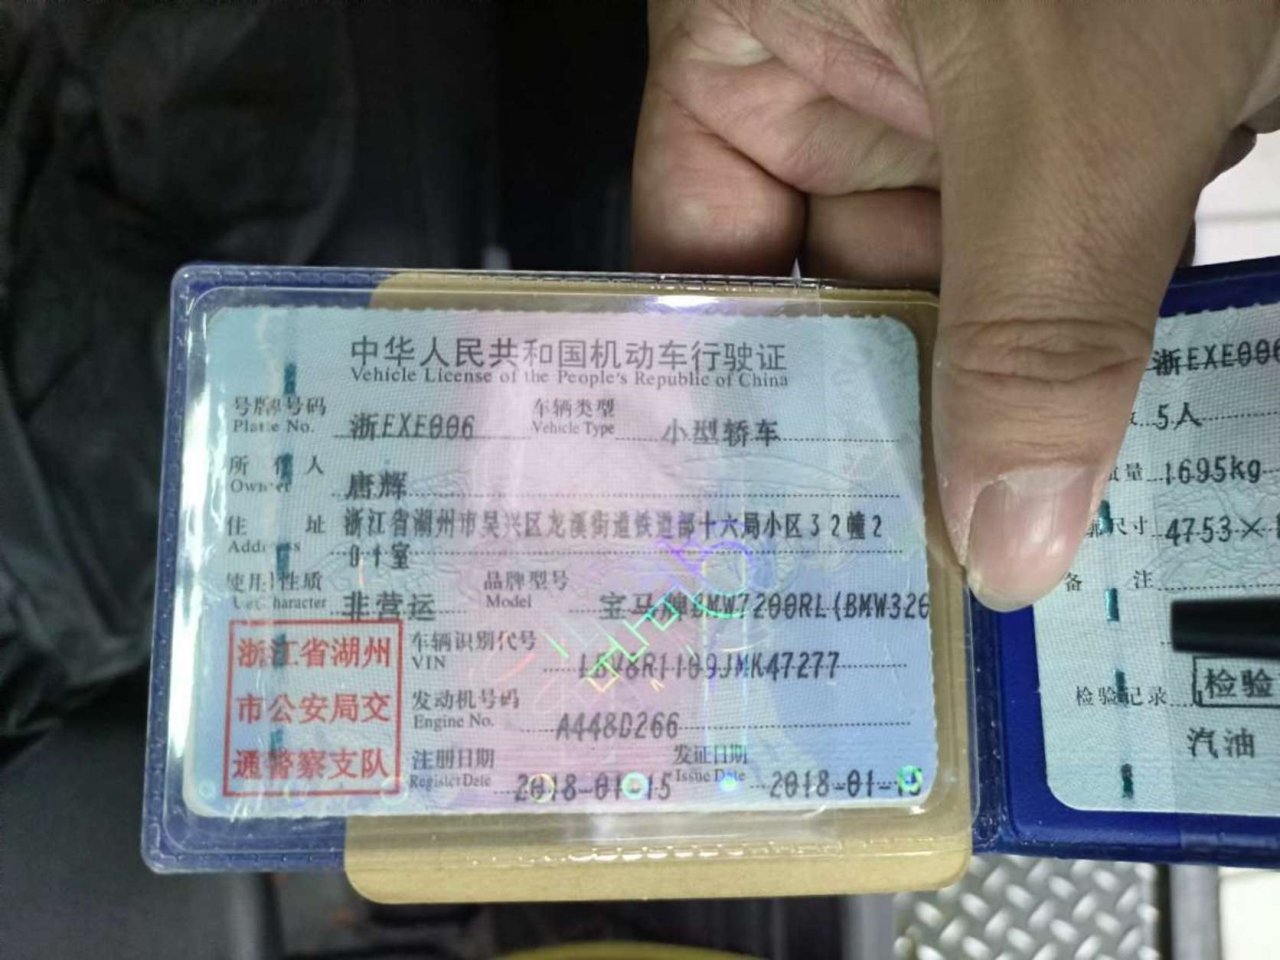 中华人民共和国机动车行驶证
Vehicle License of the People's Republic of China
号牌号码 浙EXE006 车辆类型 小型轿车
Plate No. Vehicle Type
所有人 唐辉
Owner
住址 浙江省湖州市吴兴区龙溪街道铁道部十六局小区32幢2
Address 01室
使用性质 非营运 品牌型号 宝马牌BMW7200RL(BMW326
Use Character Model
浙江省湖州
市公安局交
通警察支队
车辆识别代号 LBV8R1109JMK47277
VIN
发动机号码 A448D266
Engine No.
注册日期 2018-01-15 发证日期 2018-01-15
Register Date Issue Date
浙EXE006
5人
质量 1695kg
尺寸 4753×
备注
检验记录 检验
汽油